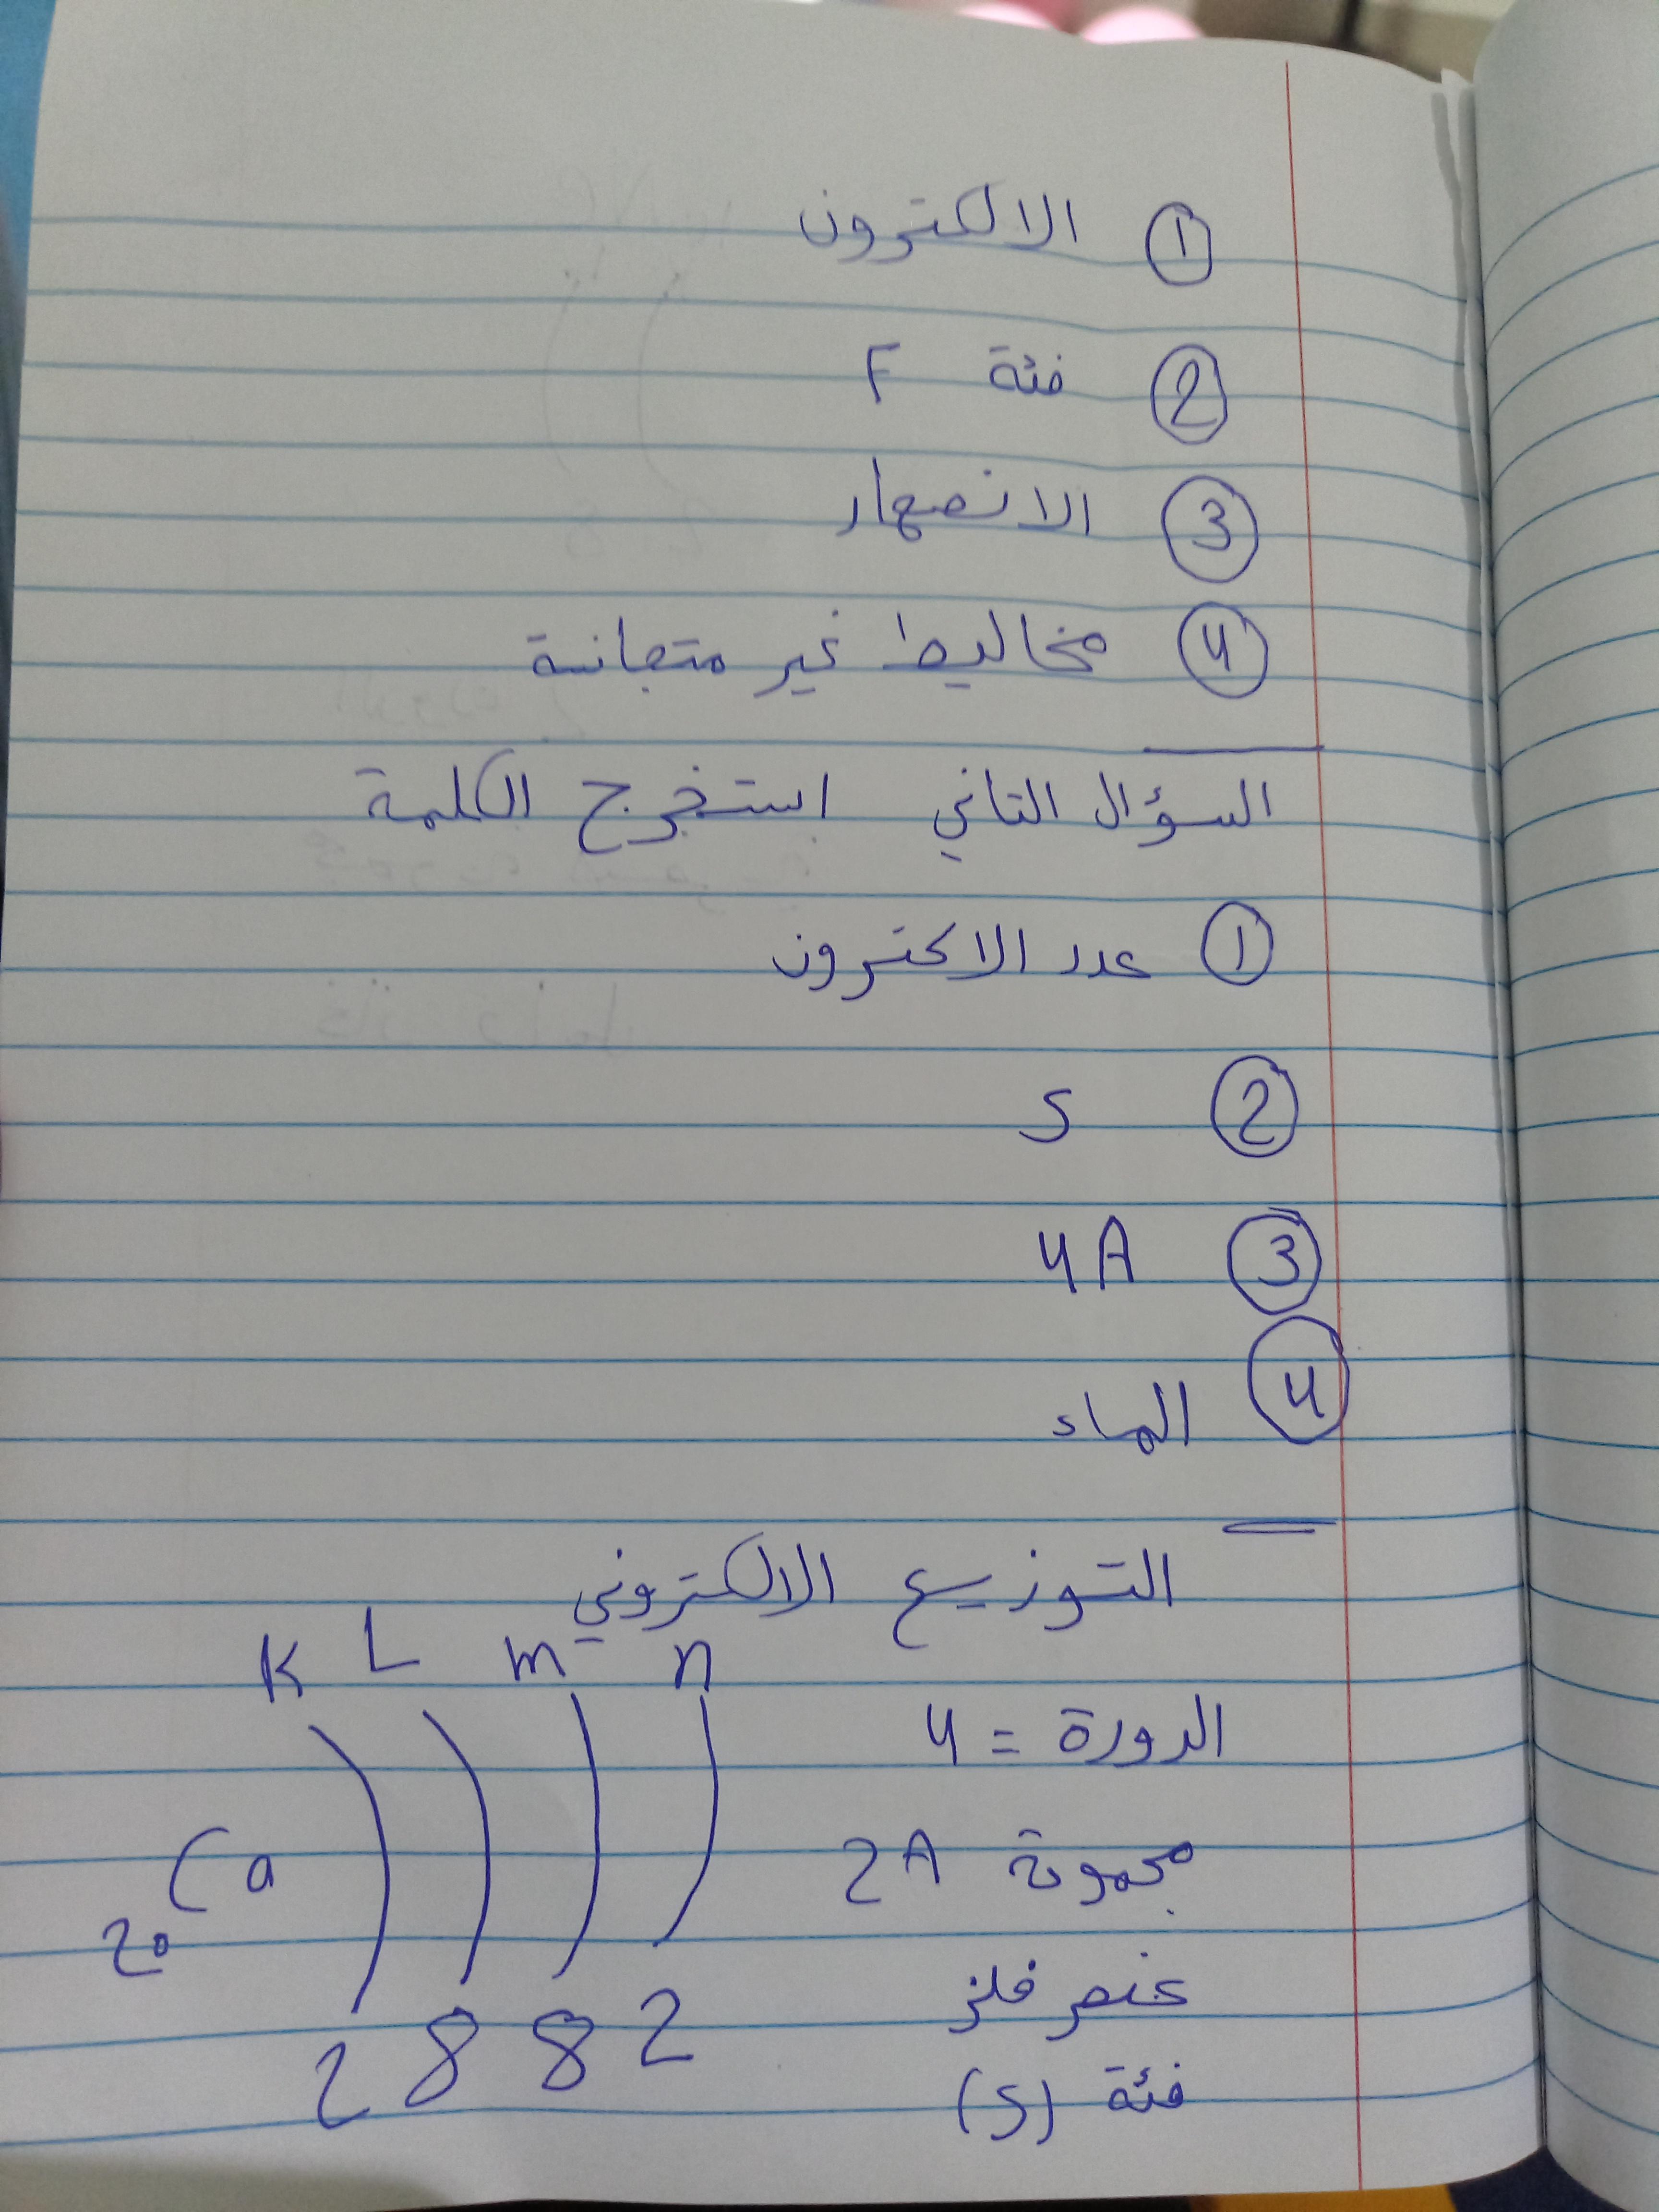 ① الالكترون
② فئة F
③ الانصهار
④ مخاليط غير متجانسة
السؤال الثاني استخرج الكلمة
① عدد الاكترون
② S
③ 4A
④ الماء
التوزيع الالكتروني
K L m n
الدورة = 4
مجموعة 2A
20Ca
عنصر فلز
2 8 8 2
فئة (S)